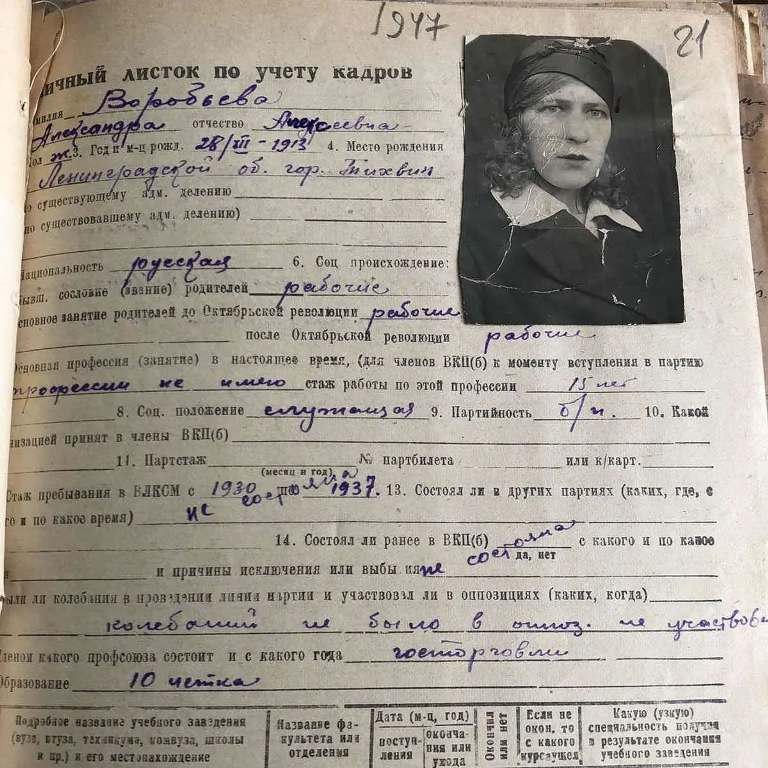 1947
21
ичный листок по учету кадров
милия Воробьева
Александра отчество Алексеевна
Пол ж. 3. Год и м-ц рожд. 28/III-1913 4. Место рождения
Ленинградской об. гор. Тихвин
о существующему адм. делению)
по существовавшему адм. делению)
Национальность русская 6. Соц происхождение:
бывш. сословие (звание) родителей рабочие
Основное занятие родителей до Октябрьской революции рабочие
после Октябрьской революции рабочие
Основная профессия (занятие) в настоящее время, (для членов ВКП(б) к моменту вступления в партию
профессии не имею стаж работы по этой профессии 15 лет
8. Соц. положение служащая 9. Партийность б/п. 10. Какой
низацией принят в члены ВКП(б)
11. Партстаж № партбилета или к/карт.
(месяц и год)
Стаж пребывания в ВЛКСМ с 1930 по 1937. 13. Состоял ли в других партиях (каких, где, с
го и по какое время) не состояла
14. Состоял ли ранее в ВКП(б) с какого и по какое
да, нет
и причины исключения или выбы ия не состояла
ыли ли колебания в проведении линии партии и участвовал ли в оппозициях (каких, когда)
колебаний не было в оппоз. не участвова
Членом какого профсоюза состоит и с какого года госторговли
Образование 10 летка
Подробное название учебного заведения
(вуза, втуза, техникума, комвуза, школы
и пр.) и его местонахождение
Название фа-
культета или
отделения
Дата (м-ц, год)
поступ-
ления
оконча-
ния или
ухода
Окончил
или нет
Если не
окон. то
с какого
курса ушел
Какую (узкую)
специальность получил
в результате окончания
учебного заведения